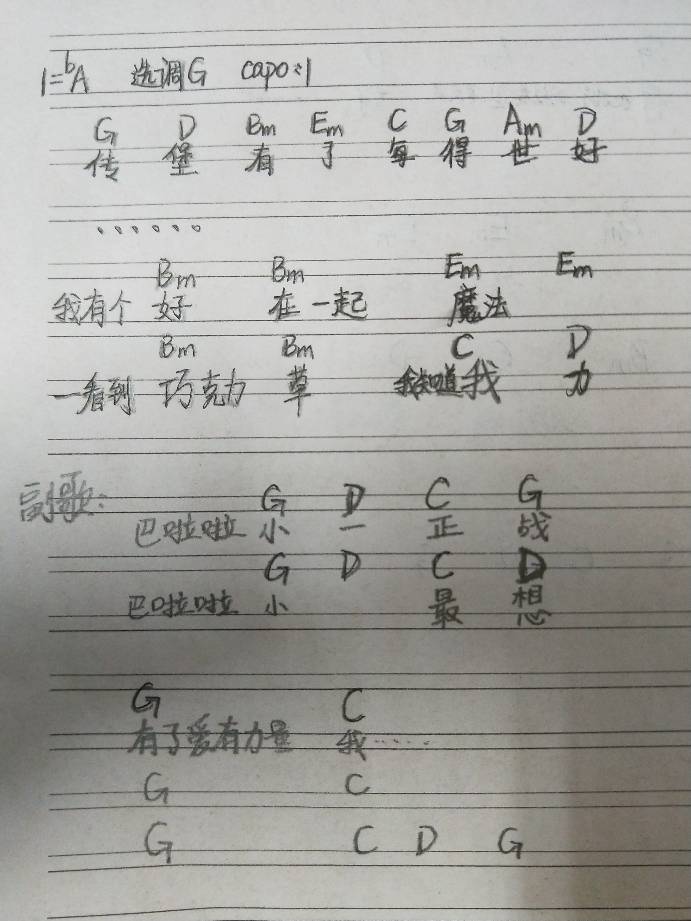 1=ᵇA 选调G capo:1
G D Bm Em C G Am D
传 堡 有 了 每 得 世 好
......
Bm Bm Em Em
我有个 好 在一起 魔法
Bm Bm C D
一看到 巧克力 草 我知道我 力
G D C G
副歌: 巴啦啦 小 一 正 战
G D C D
巴啦啦 小 最 想
G C
有了爱有力量 我……
G C
G C D G